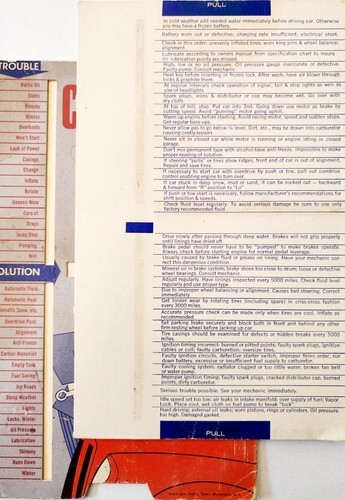 PULL
In cold weather add needed water immediately before driving car. Otherwise
you may have a frozen battery.
Battery worn out or defective; charging rate insufficient; electrical short.
Check in this order: unevenly inflated tires; worn king pins & wheel balance;
alignment.
Lubricate according to owners manual from specification chart to insure
no lubrication points are missed.
High, low or no oil pressure. Oil pressure gauge inaccurate or defective.
Faulty pump. Consult mechanic.
Heat key before inserting in frozen lock. After wash, have air blown through
locks & graphite them.
At regular intervals check operation of signal, tail & stop lights as well as
aim of headlights.
Spark plugs, wires & distributor or cap may become wet. Go over with
dry cloth.
At top of hill, stop. Put car into 2nd. Going down use motor as brake by
cutting away. Avoid "gunning" motor going uphill.
Warm up engine before starting. Avoid racing motor, speed and sudden stops.
Get regular tune-ups.
Never allow gas to go below ¼ level. Dirt, etc., may be drawn into carburetor
causing costly repairs.
Never sit in closed car while motor is running or engine idling in closed
garage.
Don't mix permanent type with alcohol-base anti-freeze. Impossible to make
proper reading of solution.
If steering "pulls" or tires show ridges, front end of car is out of alignment.
Repair and save tires.
If necessary to start car with overdrive by push or tow, pull out overdrive
control enabling engine to turn over.
If car stuck in deep snow, mud or sand, it can be rocked out — backward
& forward from "R" position to "Lo".
If push or tow start is necessary, follow manufacturer's recommendations for
shift position & speeds.
Check fluid level regularly. To avoid serious damage be sure to use only
factory recommended fluid.
Drive slowly after passing through deep water. Brakes will not grip properly
until linings have dried off.
Brake pedal should never have to be "pumped" to make brakes operate.
Always check before starting engine for normal pedal leverage.
Usually caused by brake fluid or grease on lining. Have your mechanic cor-
rect this dangerous condition.
Mineral oil in brake system; brake shoes too close to drum; loose or defective
wheel bearings. Consult mechanic.
Adjust regularly. Have linings inspected every 5000 miles. Check fluid level
regularly and use proper type.
Due to improper wheel balancing or alignment. Causes bad steering. Correct
immediately.
Get longer wear by rotating tires (including spare) in criss-cross fashion
every 3000 miles.
Accurate pressure check can be made only when tires are cool. Inflate as
recommended.
Set parking brake securely and block both in front and behind any other
firm-resting wheel before jacking up car.
Tire casings should be examined for defects or hidden breaks every 5000
miles.
Ignition timing incorrect; burned or pitted points; faulty spark plugs, ignition
cables or coil; faulty carburetion; oversize tires.
Faulty ignition circuits, defective starter switch, improper firing order, run
down battery, excessive or insufficient fuel supply to carburetor.
Faulty cooling system; radiator clogged or too little water; broken fan belt
or water pump.
Improper ignition timing; faulty spark plugs, cracked distributor cap, burned
points, dirty carburetor.
Serious trouble possible. See your mechanic immediately.
Idle speed set too low; air leaks in intake manifold; over supply of fuel; Vapor
Lock. Place cool, wet cloth on fuel pump to break "lock".
Hard driving; external oil leaks; worn pistons, rings or cylinders. Oil pressure
too high. Damaged gasket.
PULL
TROUBLE
Burns Oil
Stalls
Knocks
Misses
Overheats
Won't Start
Lack of Power
Casings
Change
Inflate
Rotate
Uneven Wear
Care of
Drags
Jerky Stop
Pumping
Wet
OLUTION
Automatic Fluid
Automatic Push
Overdrive Push
Alignment
Anti-Freeze
Carbon Monoxide
Empty Tank
Fuel Saving
Icy Roads
Damp Weather
Lights
Locks, Winter
Oil Pressure
Lubrication
Shimmy
Runs Down
Winter